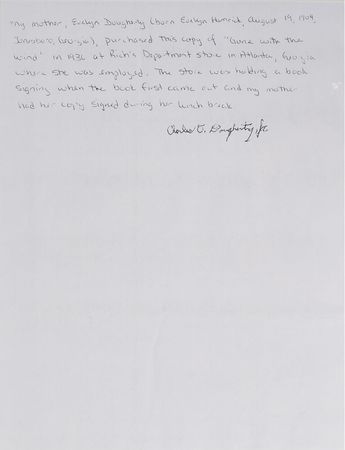 "My mother, Evelyn Dougherty (born Evelyn Hemrick, August 19, 1909,
Georgia), purchased this copy of "Gone with the
Wind" in 1936 at Rich's Department Store in Atlanta, Georgia
where she was employed. The store was holding a book
signing when the book first came out and my mother
had her copy signed during her lunch break
Charles V. Dougherty, Jr.